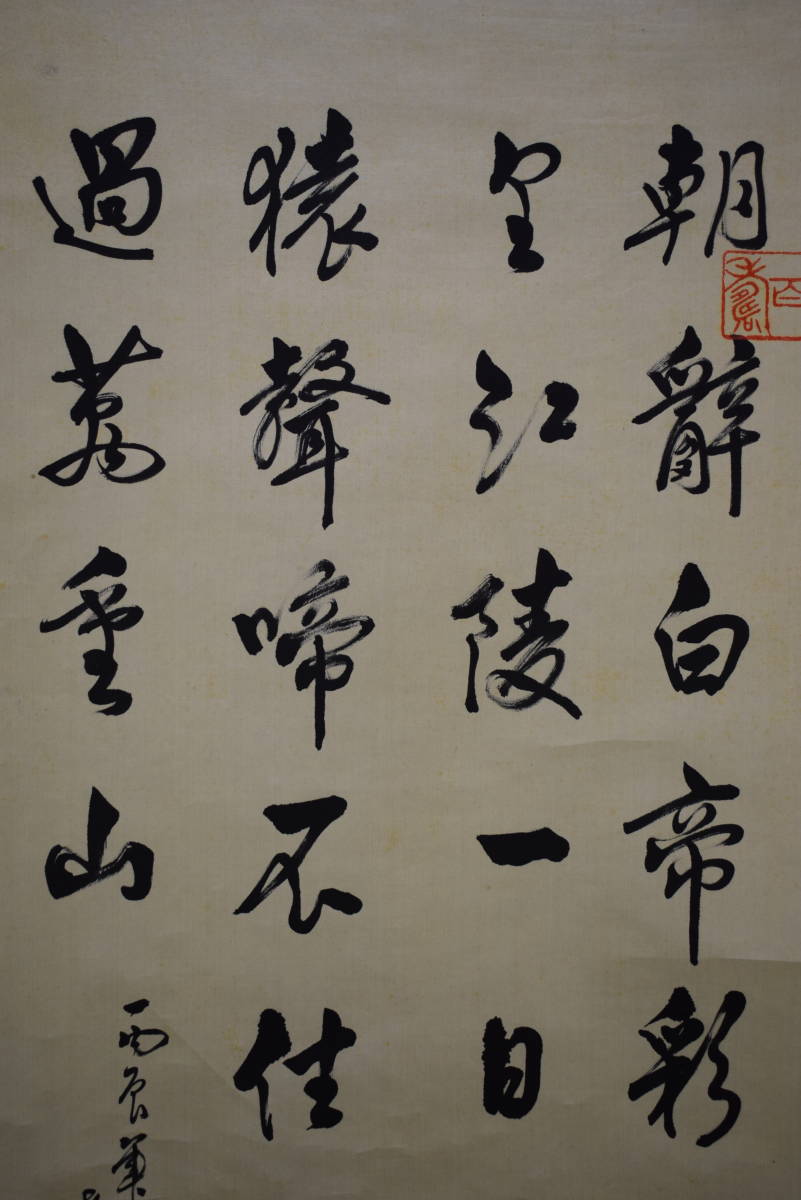 朝辭白帝彩
里江陵一日
猿聲啼不住
過萬重山
丙辰